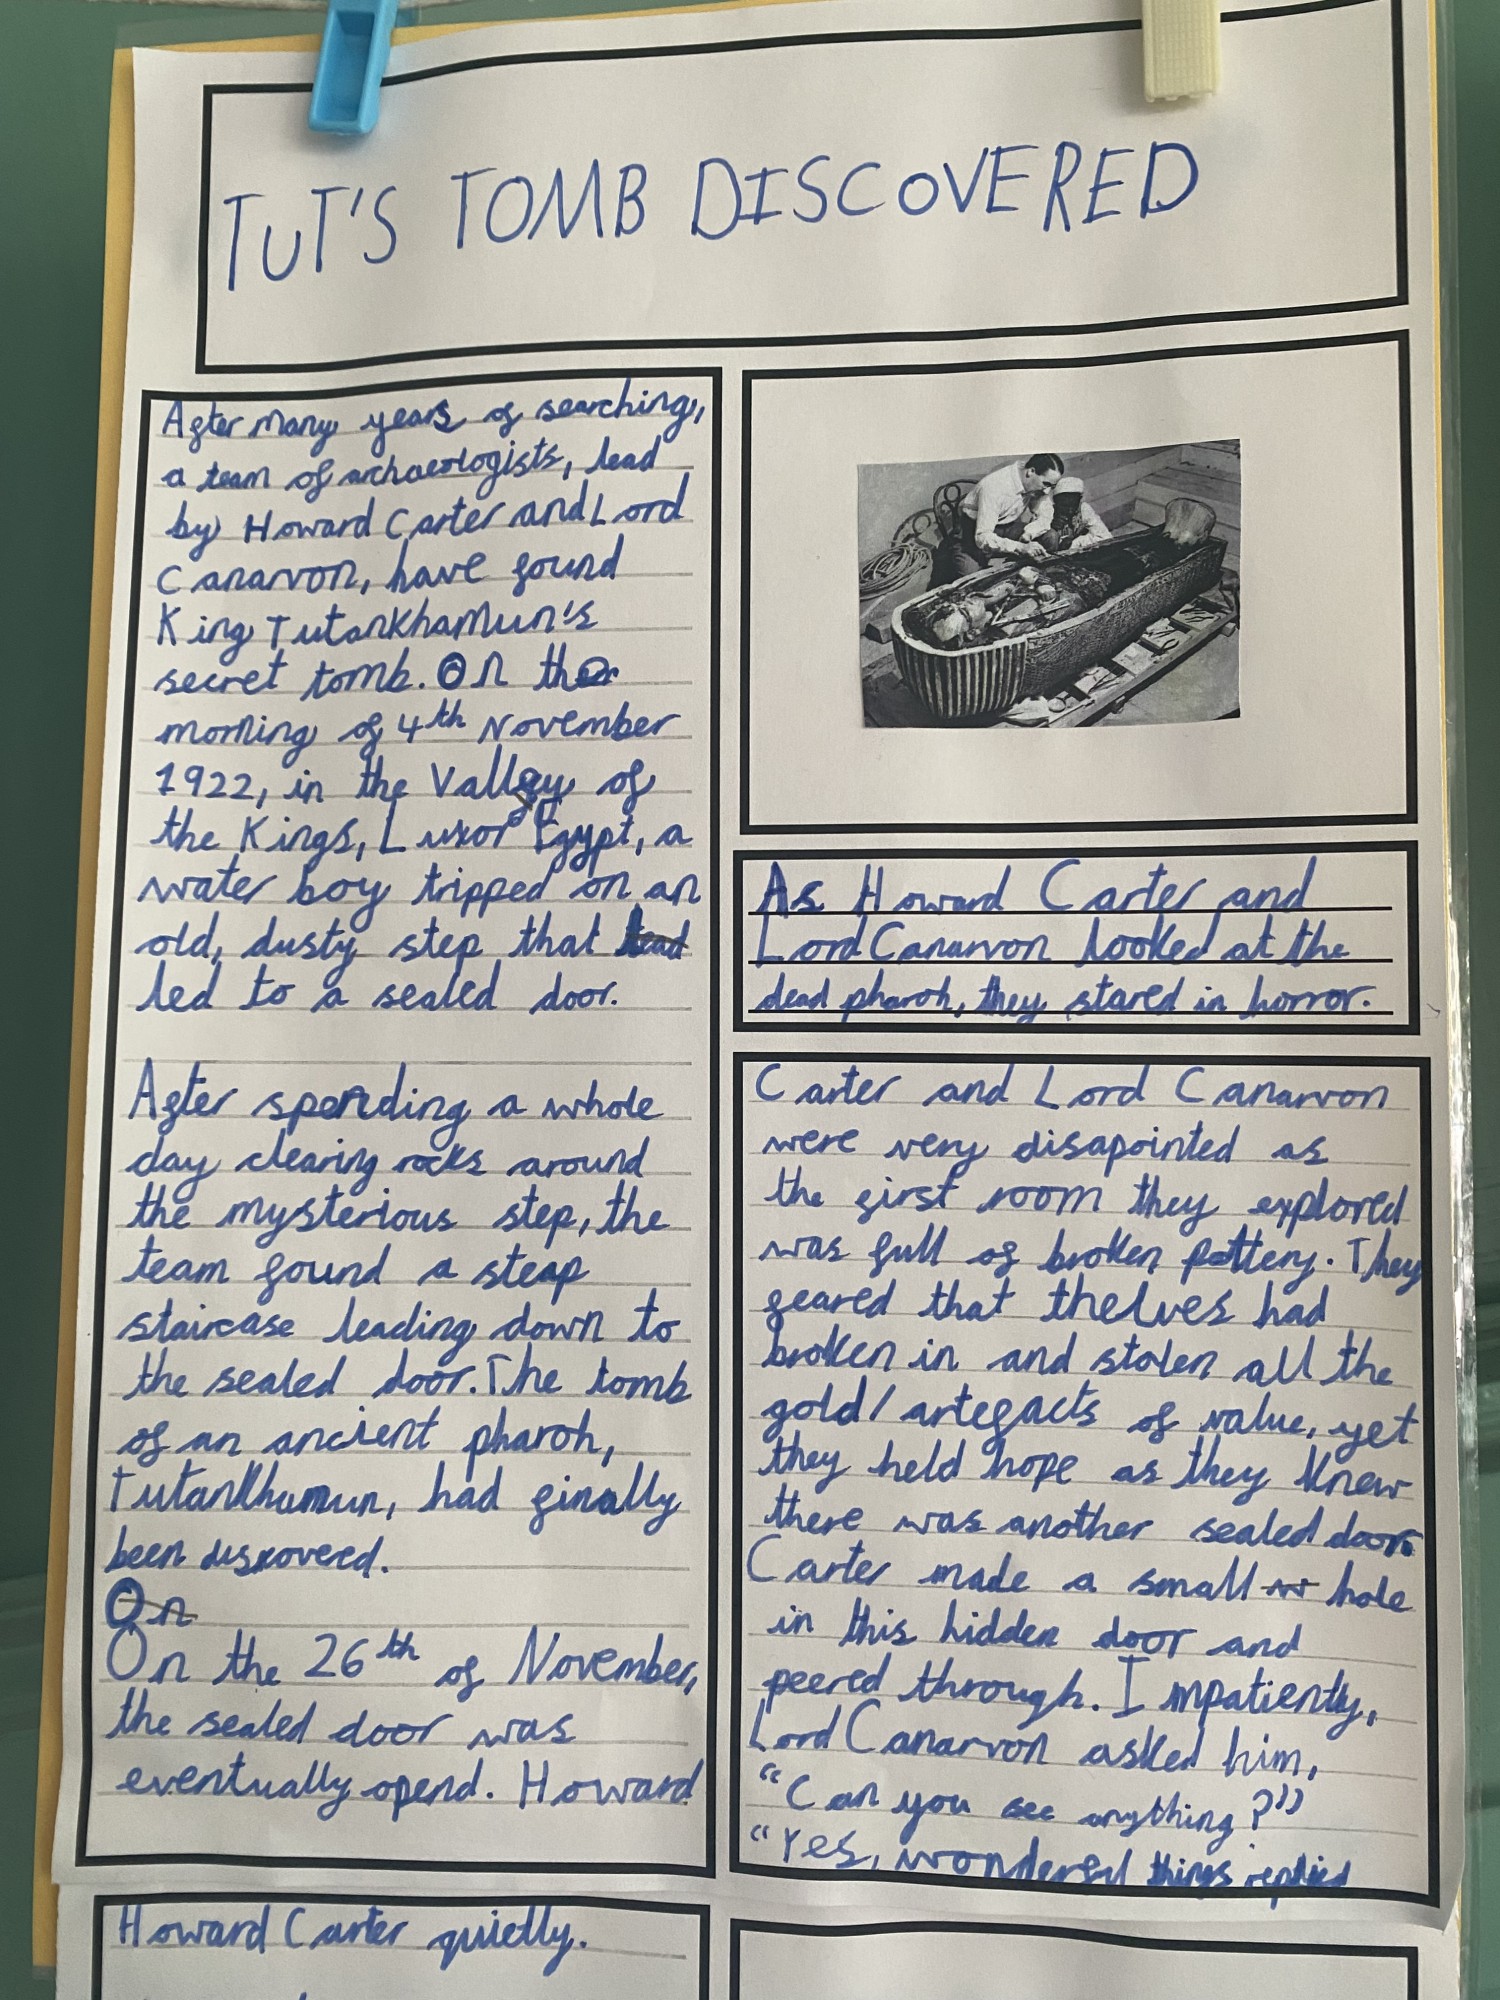 TUT'S TOMB DISCOVERED
After many years of searching,
a team of archaeologists, lead
by Howard Carter and Lord
Canarvon, have found
King Tutankhamun's
secret tomb. On the
morning of 4th November
1922, in the Valley of
the Kings, Luxor, Egypt, a
water boy tripped on an
old, dusty step that lead
led to a sealed door.
After spending a whole
day clearing rocks around
the mysterious step, the
team found a steap
staircase leading down to
the sealed door. The tomb
of an ancient pharoh,
Tutankhumun, had finally
been discovered.
On
On the 26th of November,
the sealed door was
eventually opend. Howard
As Howard Carter and
Lord Canarvon looked at the
dead pharoh, they stared in horror.
Carter and Lord Canarvon
were very disapointed as
the first room they explored
was full of broken pottery. They
feared that theives had
broken in and stolen all the
gold/artefacts of value, yet
they held hope as they knew
there was another sealed door.
Carter made a small hole
in this hidden door and
peered through. Impatiently,
Lord Canarvon asked him,
"Can you see anything?"
"Yes, wonderful things replied
Howard Carter quietly.